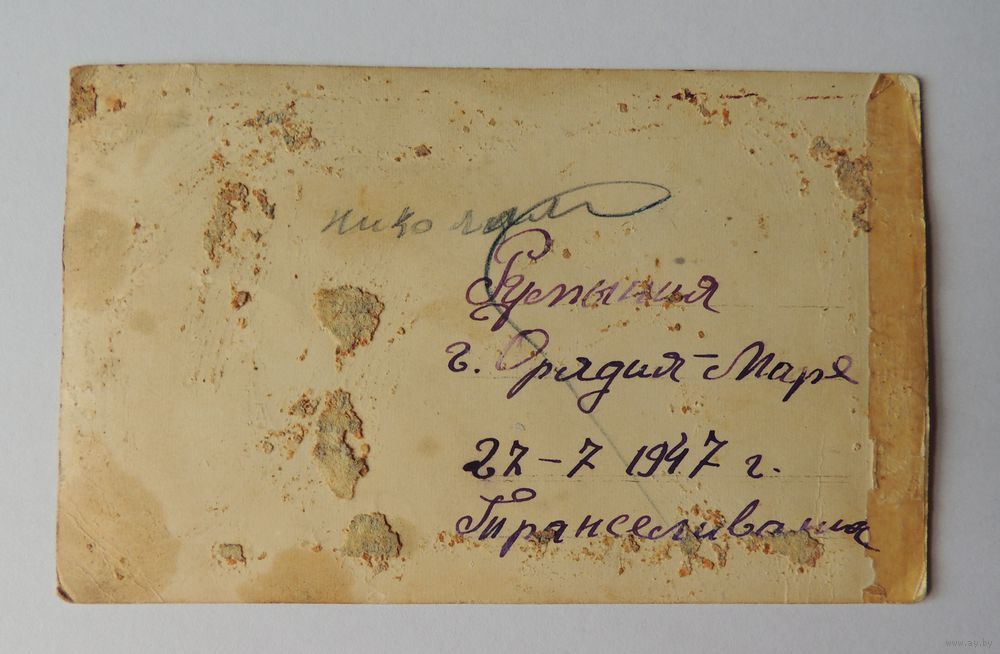 Николай
Румыния
г. Орядия-Маре
27-7 1947 г.
Транселивания
www.ay.by